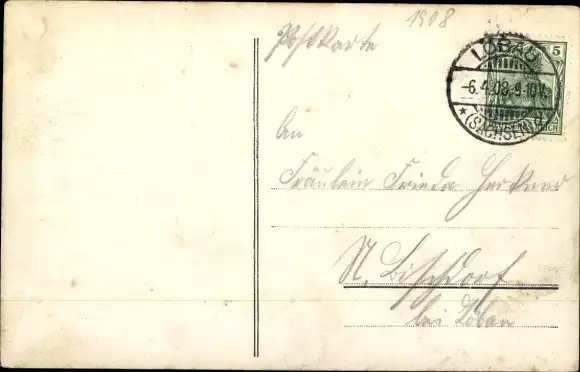 1908
Postkarte
LÖBAU
-6.4.08.9-10V.
*(SACHSEN)
5
REICH
An
Fräulein Frieda Herkner
N. Bischdorf
bei Löbau